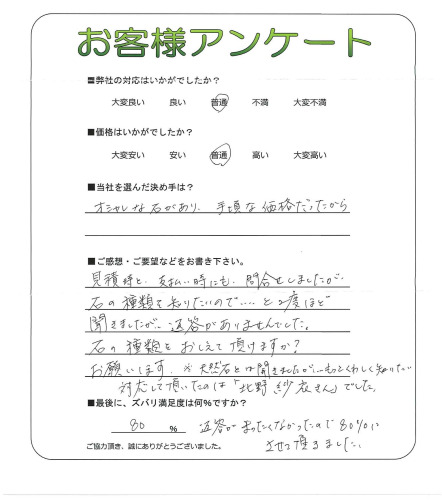 お客様アンケート
■弊社の対応はいかがでしたか？
大変良い　良い　普通　不満　大変不満
■価格はいかがでしたか？
大変安い　安い　普通　高い　大変高い
■当社を選んだ決め手は？
オシャレな石があり、手頃な価格だったから
■ご感想・ご要望などをお書き下さい。
見積時と、支払い時にも、問合せしましたが、
石の種類を知りたいので‥‥と2度ほど
聞きましたが、返答がありませんでした。
石の種類をおしえて頂けますか？
お願いします。※天然石とは聞きましたが‥もっとくわしく知りたい
対応して頂いたのは「北野 紗衣さん」でした。
■最後に、ズバリ満足度は何％ですか？
80　％　返答がまったくなかったので80％に
ご協力頂き、誠にありがとうございました。　させて頂きました。